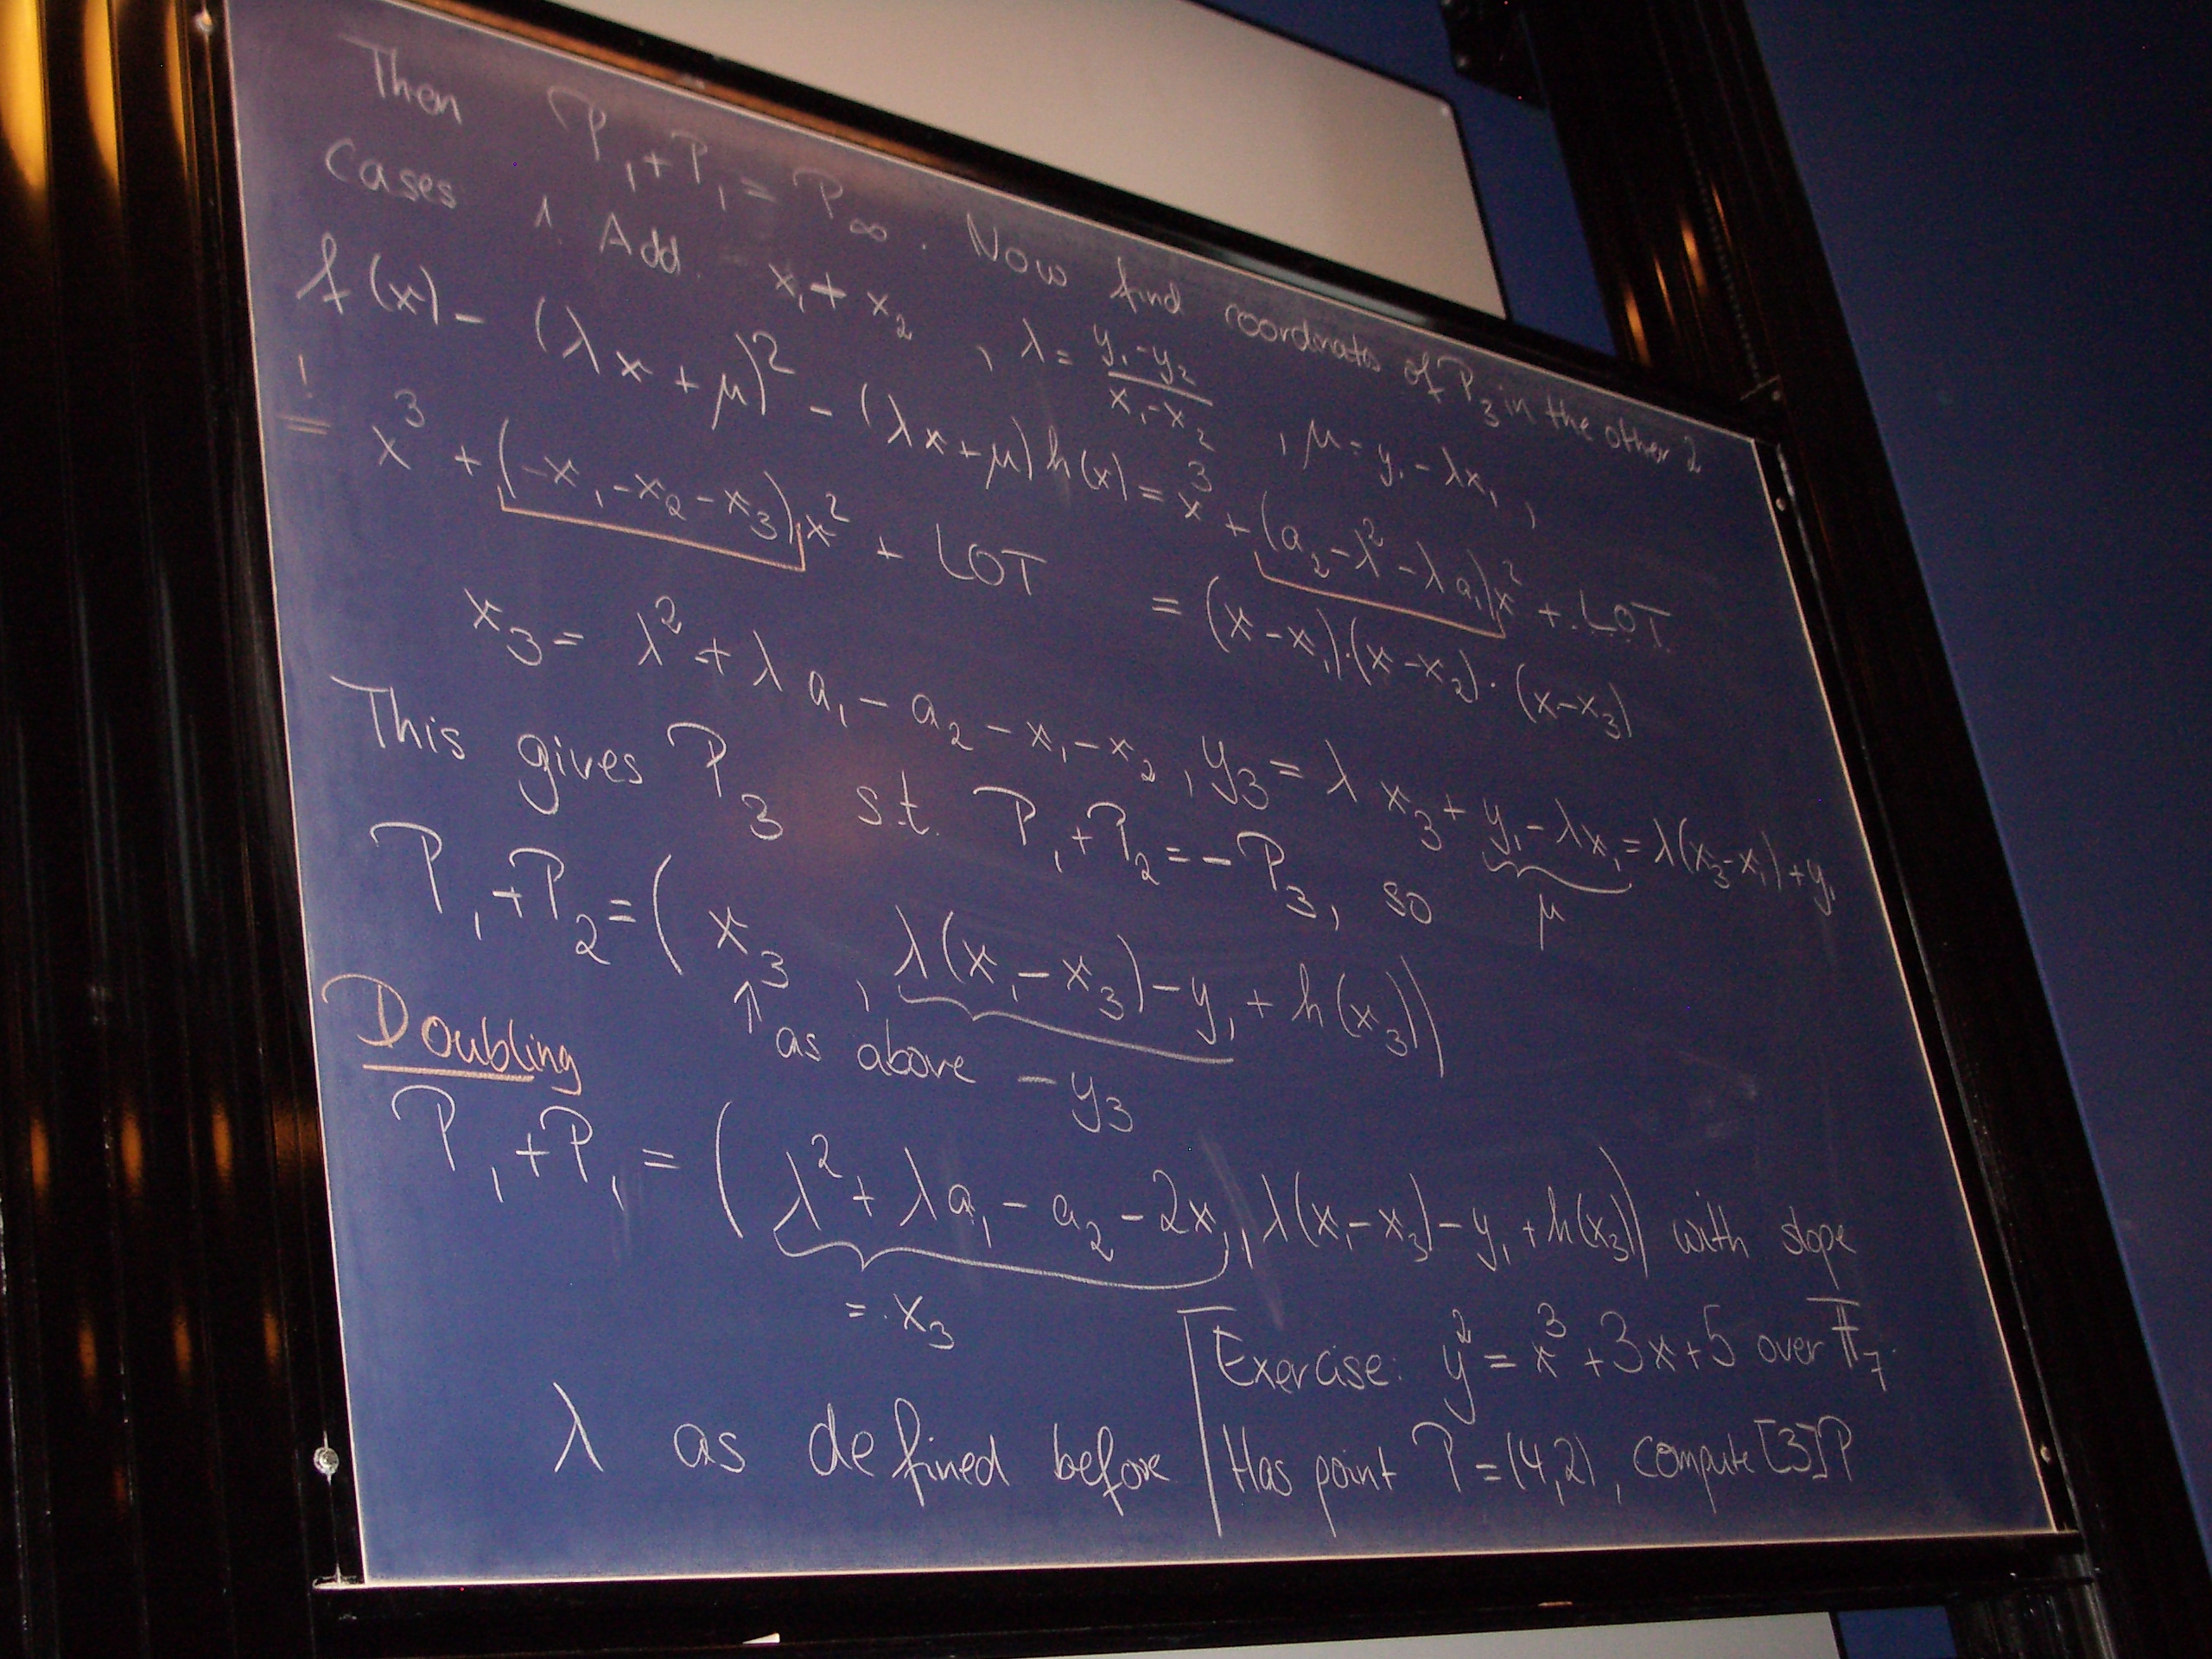 Then P₁+P₁ = P∞. Now find coordinates of P₃ in the other 2
cases 1. Add. x₁ + x₂, λ = (y₁-y₂)/(x₁-x₂), μ = y₁-λx₁,
f(x) - (λx+μ)² - (λx+μ)h(x) = x³ + (a₂-λ²-λa₁)x² + LOT
! = x³ + (-x₁-x₂-x₃)x² + LOT = (x-x₁)·(x-x₂)·(x-x₃)
x₃ = λ² + λa₁ - a₂ - x₁ - x₂, y₃ = λx₃ + y₁-λx₁ = λ(x₃-x₁)+y₁
μ
This gives P₃ s.t. P₁+P₂ = -P₃, so
P₁+P₂ = (x₃, λ(x₁-x₃)-y₁ + h(x₃))
↑ as above -y₃
Doubling
P₁+P₁ = (λ²+λa₁-a₂-2x₁, λ(x₁-x₃)-y₁+h(x₃)) with slope
=: x₃
λ as defined before
Exercise: y² = x³+3x+5 over F₇.
Has point P=(4,2), compute [3]P